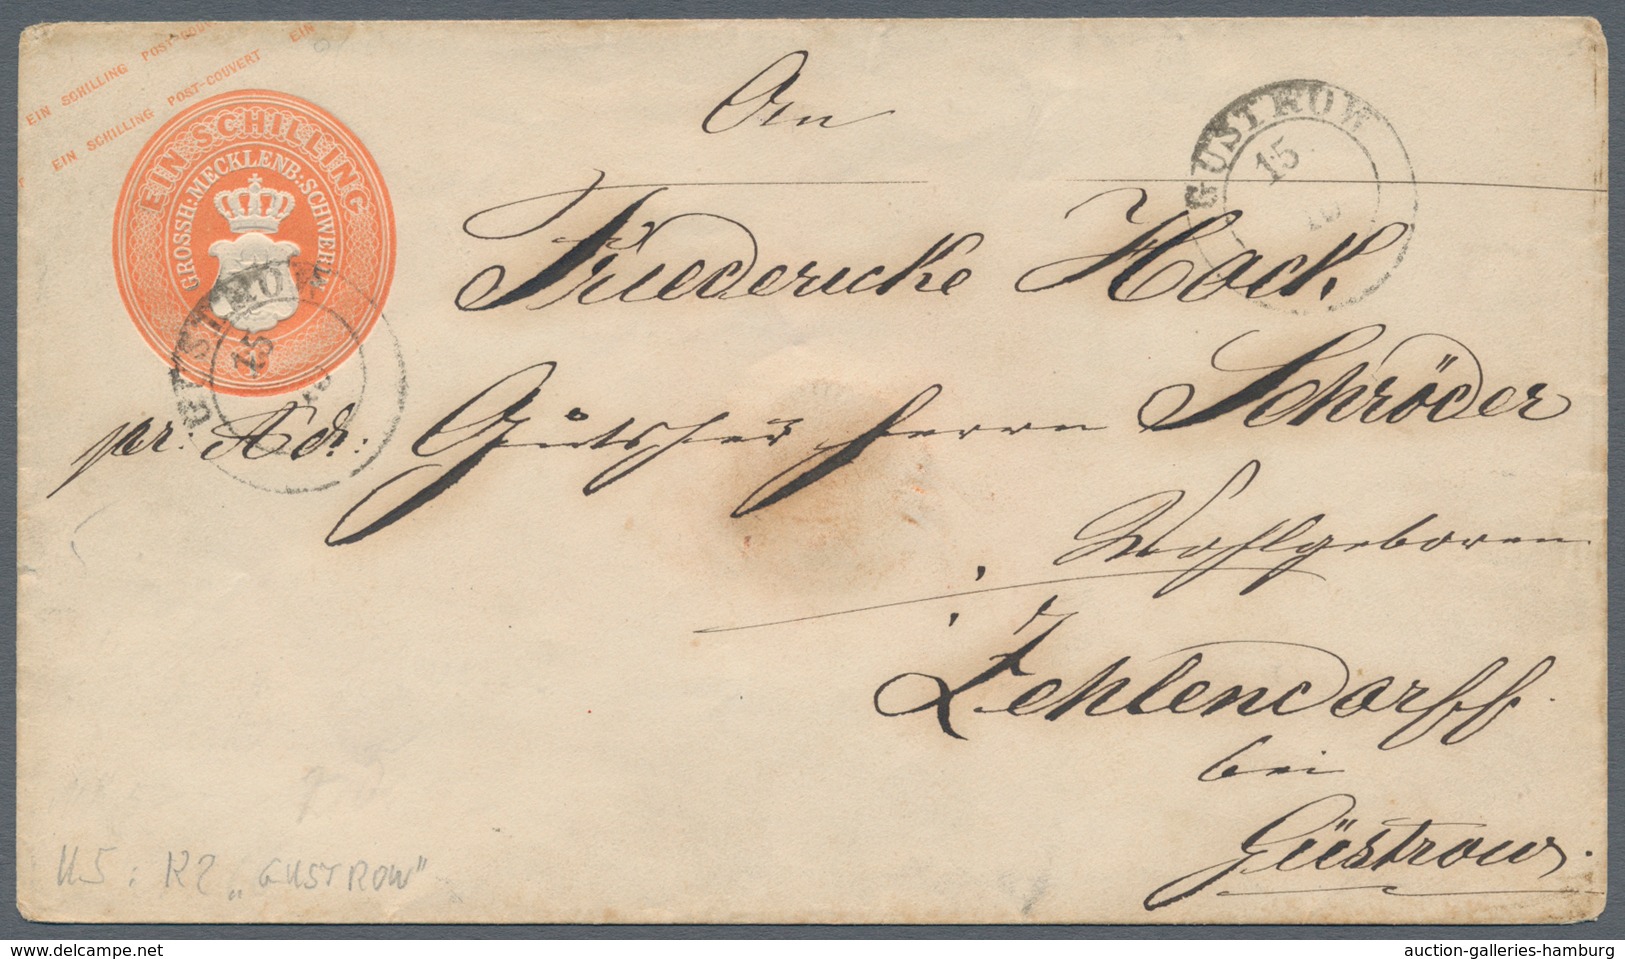 EIN SCHILLING POST-COUVERT EIN
EIN SCHILLING POST-COUVERT
EIN SCHILLING
GROSSH: MECKLENB: SCHWERIN
GUSTROW
15
GUSTROW
15
An
Friedericke Hack
pr. Adr: Gutsher Herrn Schröder
Wohlgeboren
Zehlendorff.
bei
Güstrow.
U5 : K2 „GUSTROW"
www.delcampe.net
auction-galleries-hamburg